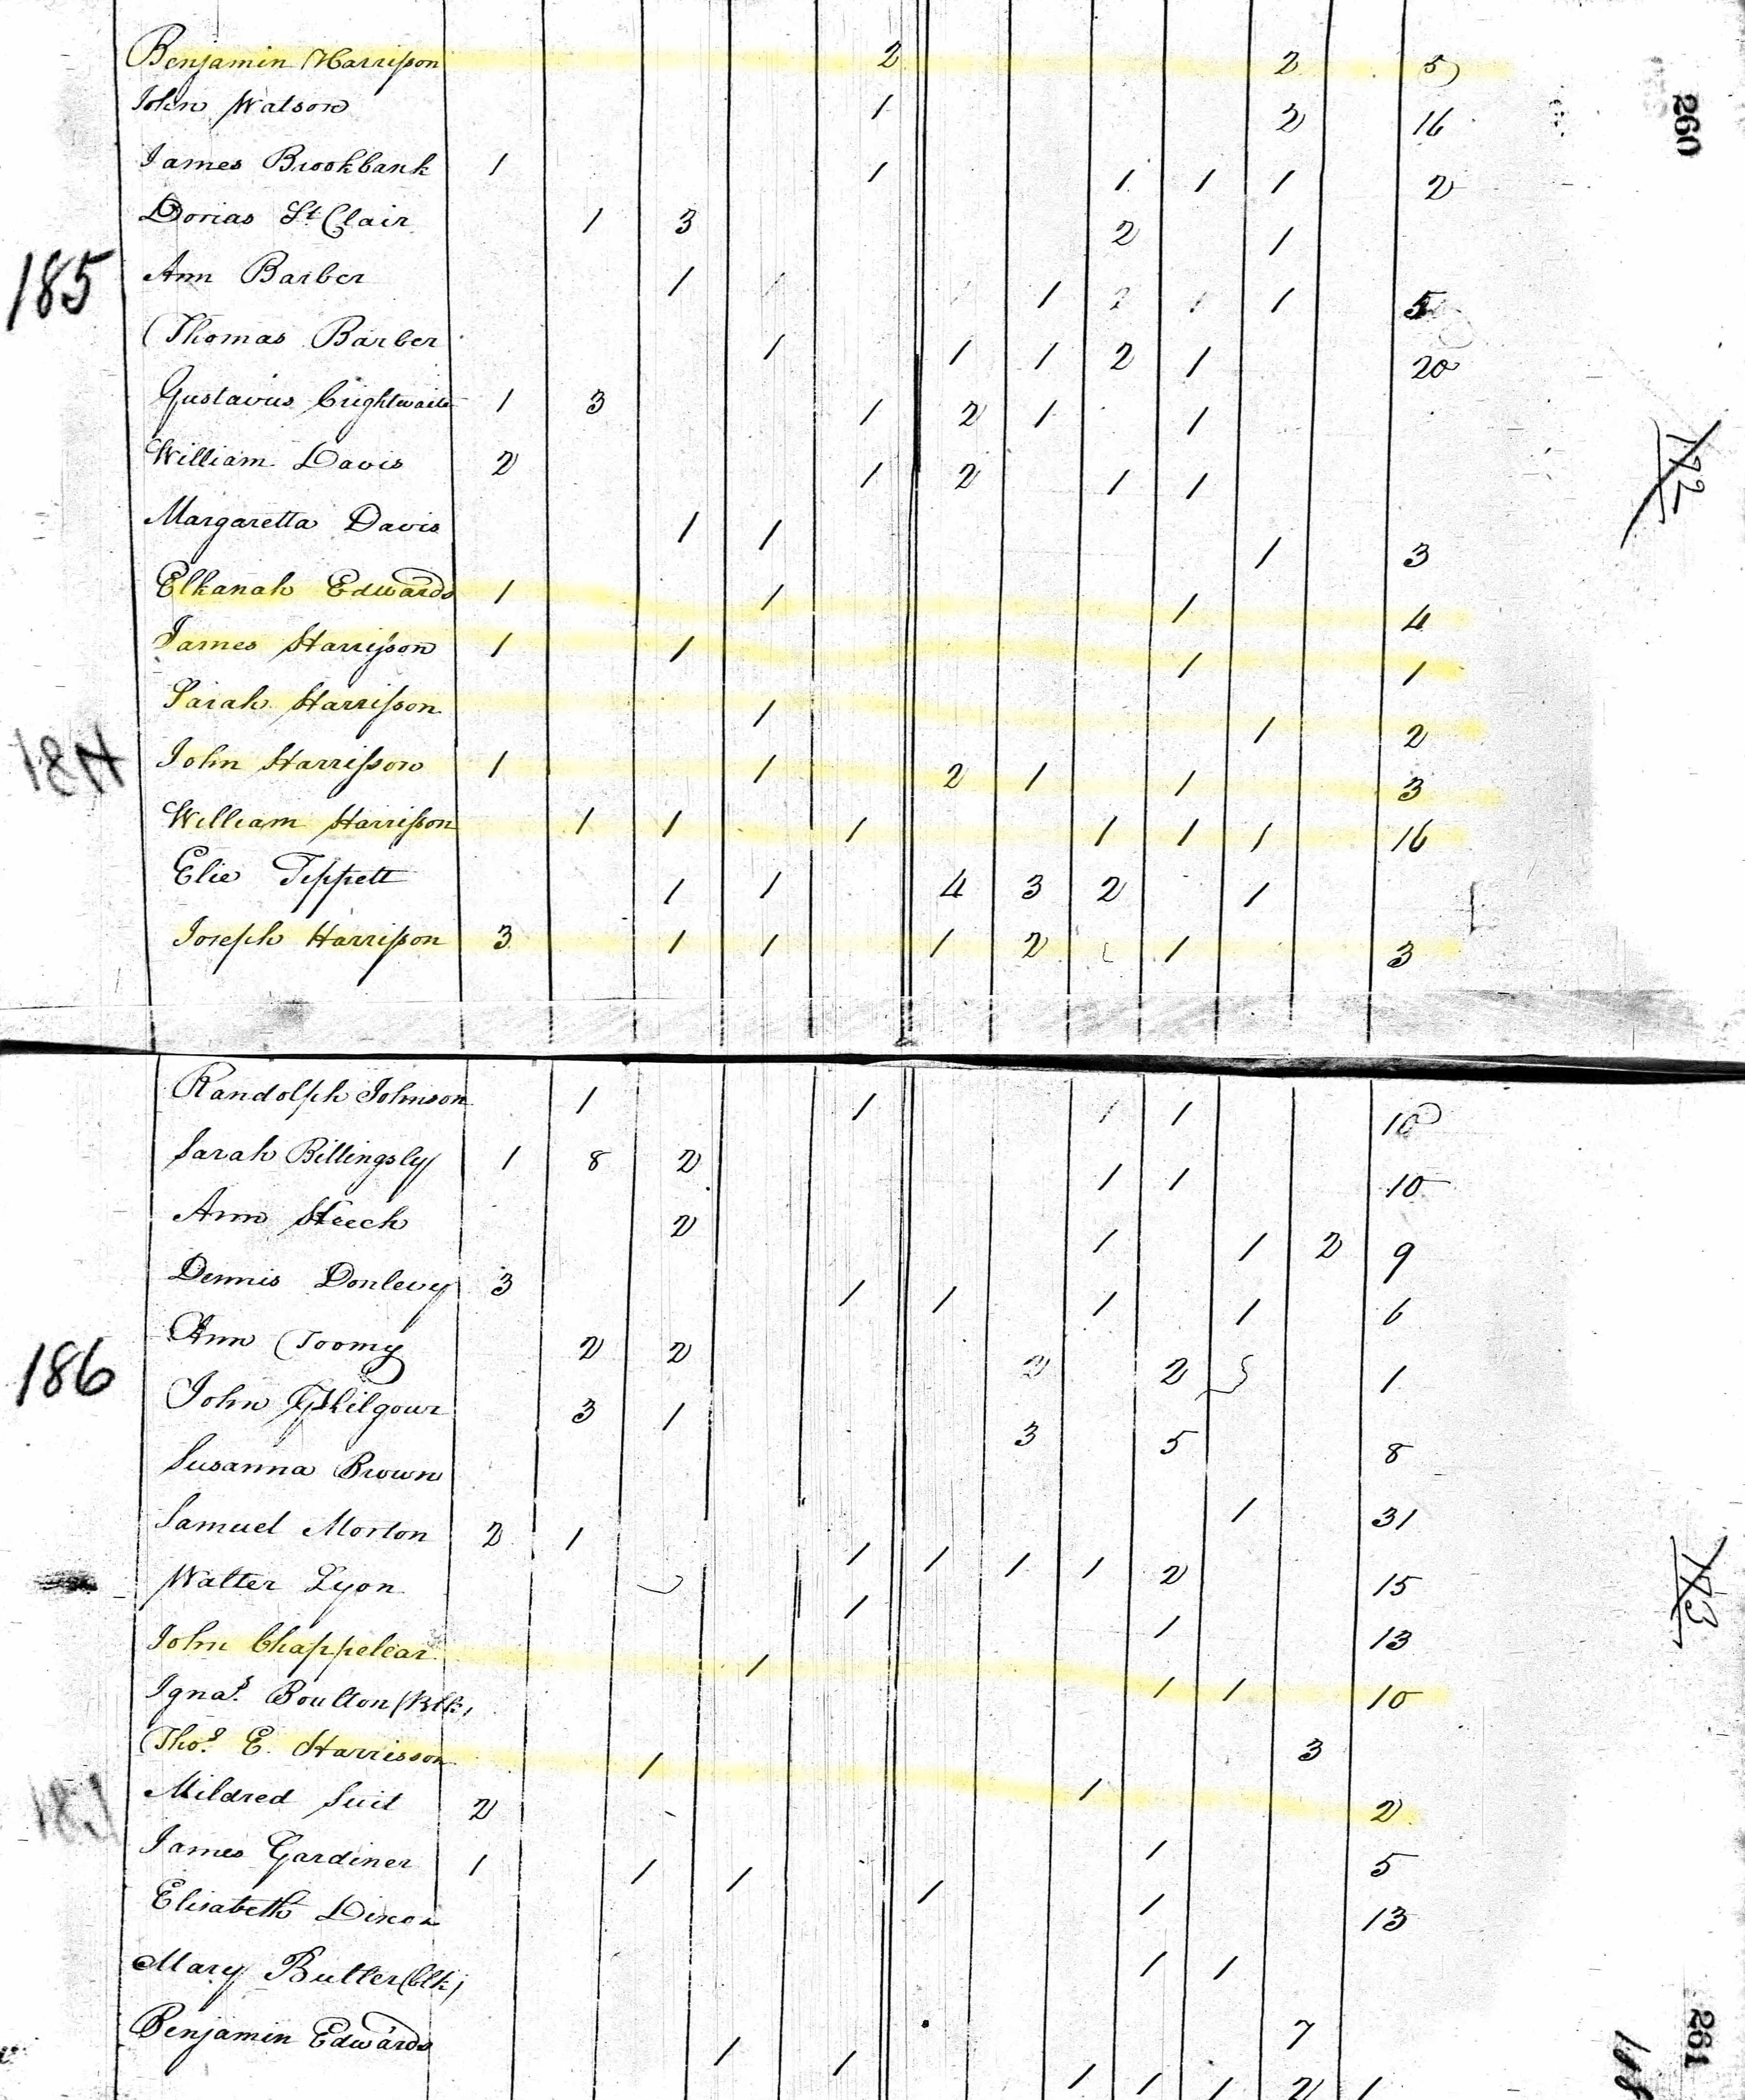 Benjamin Harrison 2 2 5
260
John Watson 1 2 16
James Brookbank 1 1 1 1 1 2
Dorias St Clair 1 3 2 1
185
Ann Barber 1 1 1 5
Thomas Barber 1 1 1 2 1 20
Gustavus 1 3 1 2 1 1
William Davis 2 1 2 1 1
Margaretta Davis 1 1 1 3
Elkanah Edwards 1 1 1 4
James Harrison 1 1 1 1
Sarah Harrison 1 1 2
John Harrison 1 1 2 1 1 3
William Harrison 1 1 1 1 1 1 16
Elie Tippett 1 1 4 3 2 1
Joseph Harrison 3 1 1 1 2 1 3
Randolph Johnson 1 1 1 1 10
Sarah Billingsly 1 8 2 1 1 10
Ann Steech 2 1 1 2 9
Dennis Donlevy 3 1 1 1 1 6
Ann Toomy 2 2 2 2 1
186
John 3 1 3 5 8
Susanna Brown 1 31
Samuel Morton 2 1 1 1 1 1 2 15
Walter Lyon 1 1 13
John Chappelear 1 1 1 10
Ignas. Boulton (Blk) 3
Thos. E. Harrisson 1 1 2
Mildred Suit 2 1 5
James Gardiner 1 1 1 1 1 13
Elisabeth Dixon 1 1
Mary Butler (blk) 7
Benjamin Edwards 1 1 1 1 1 2 1
261